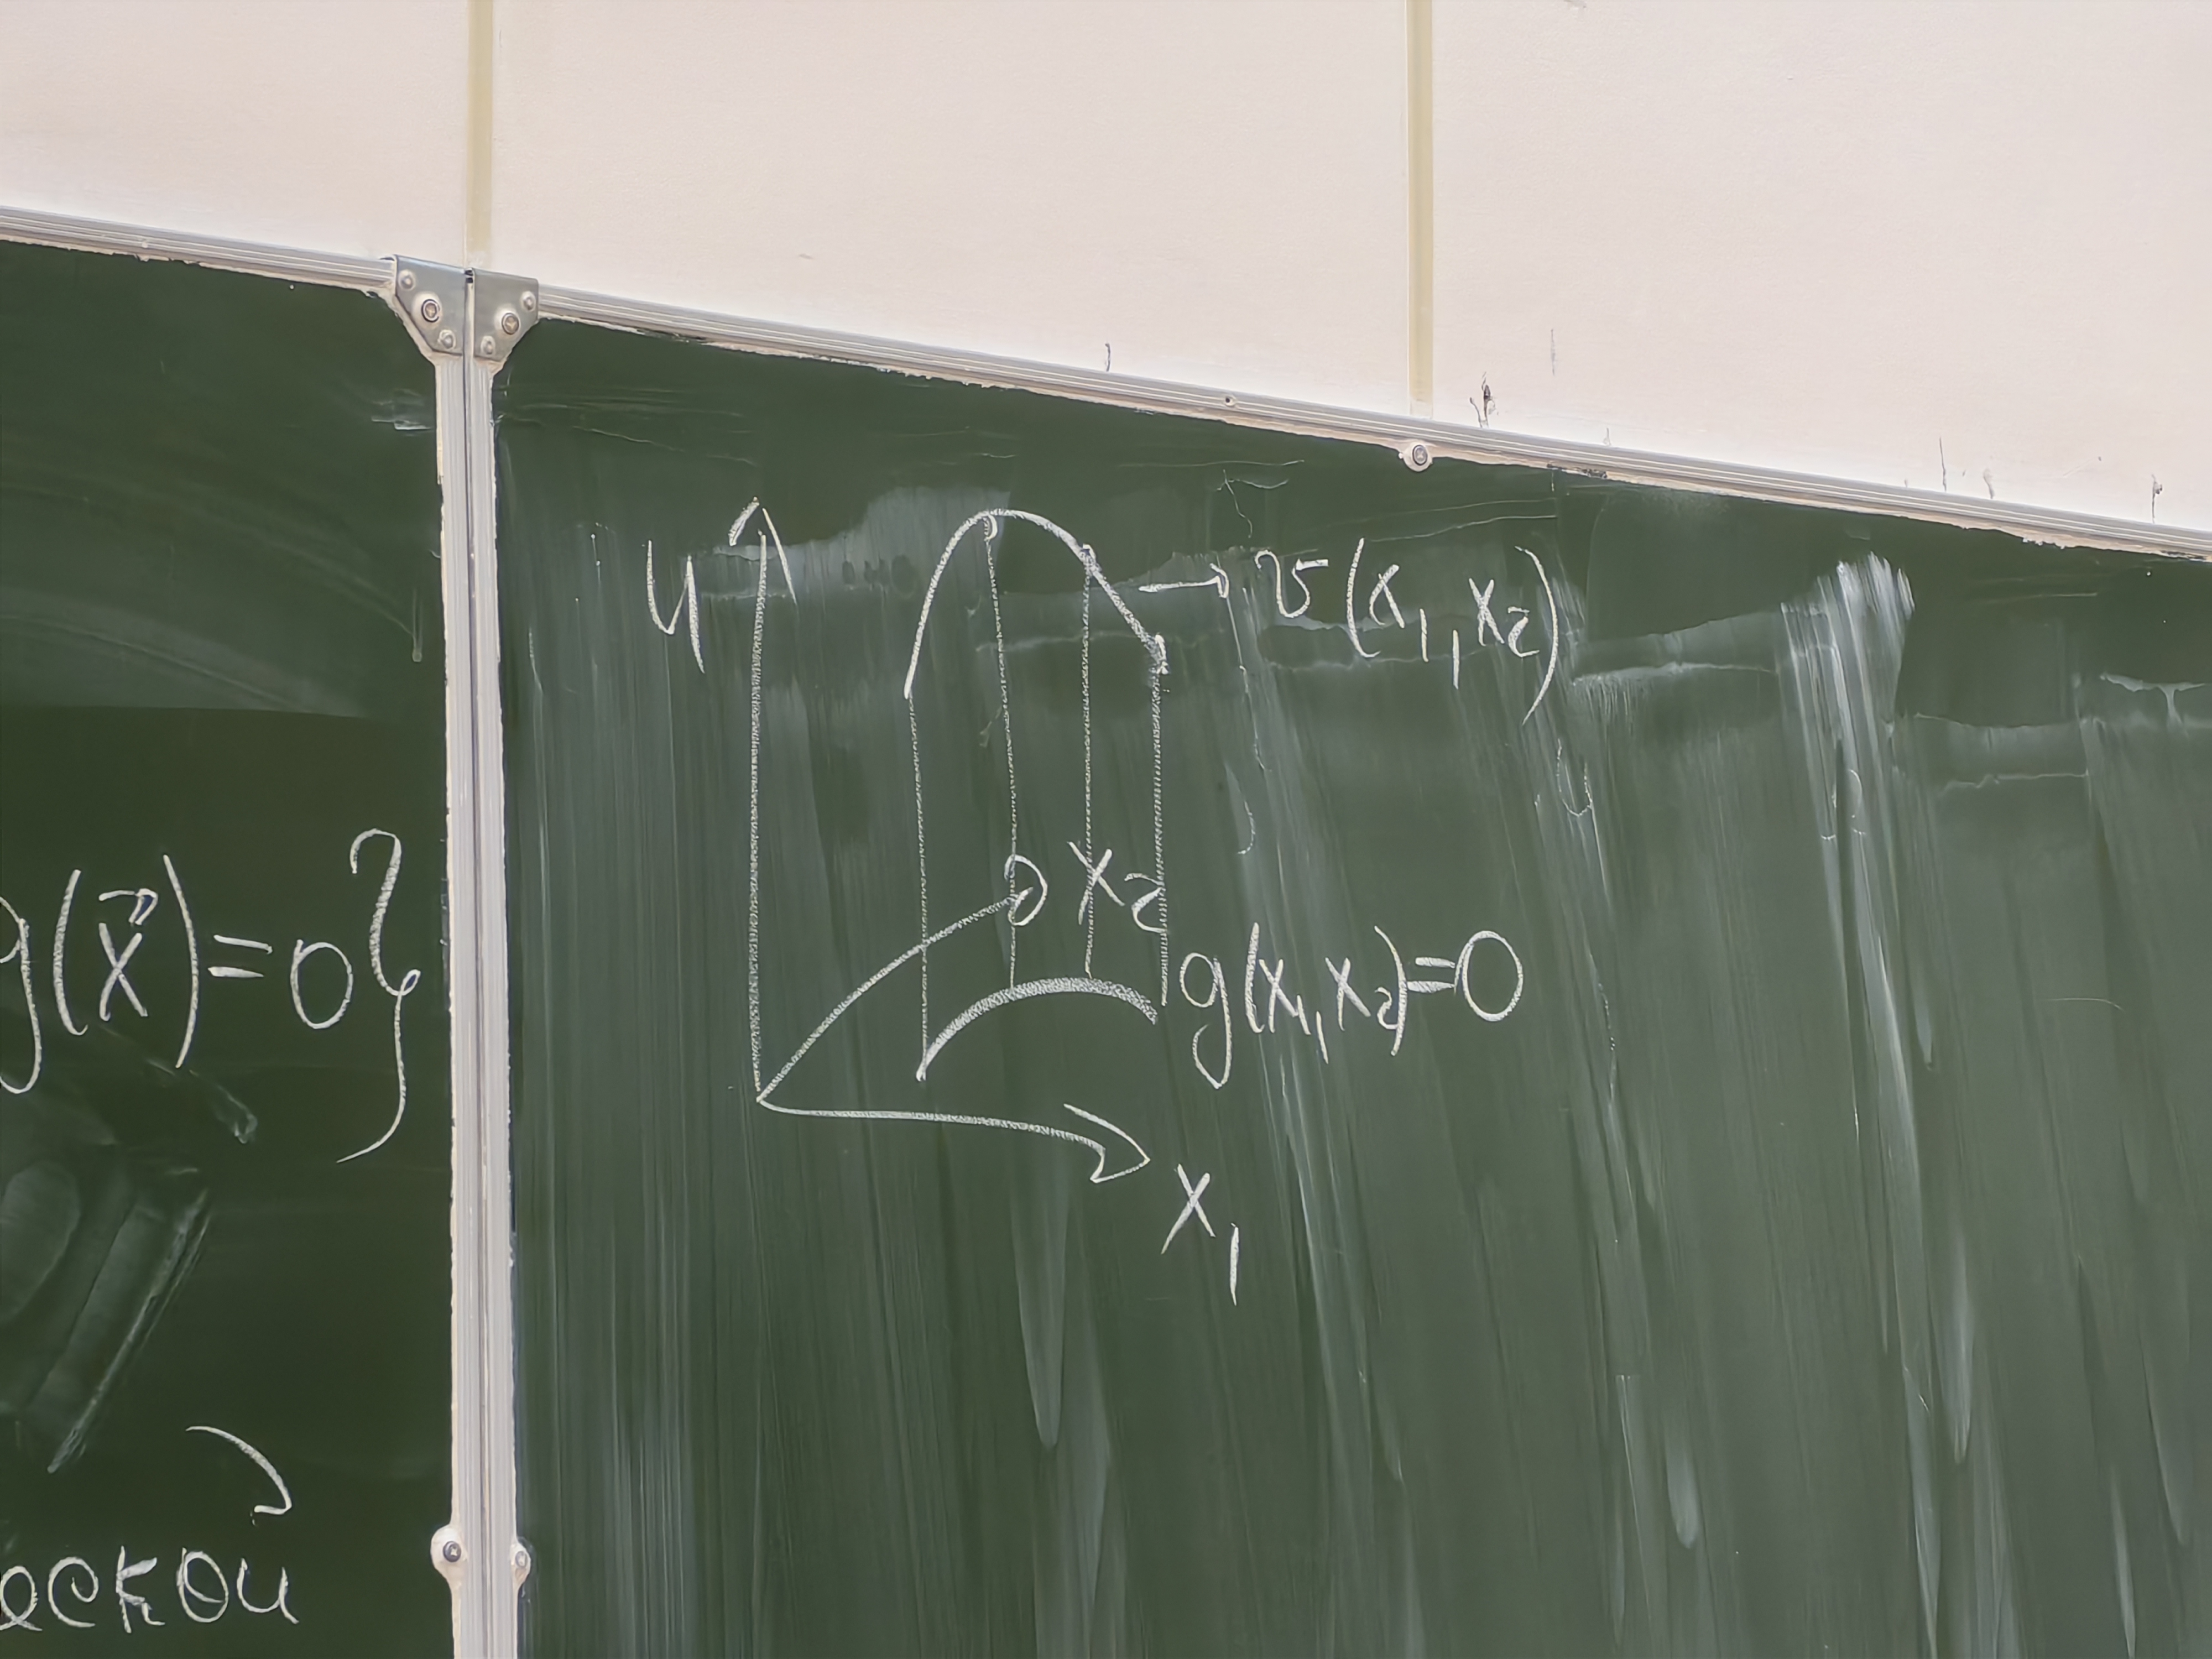 g(x⃗)=0}
еской
u
v(x₁,x₂)
x₂
g(x₁,x₂)=0
x₁